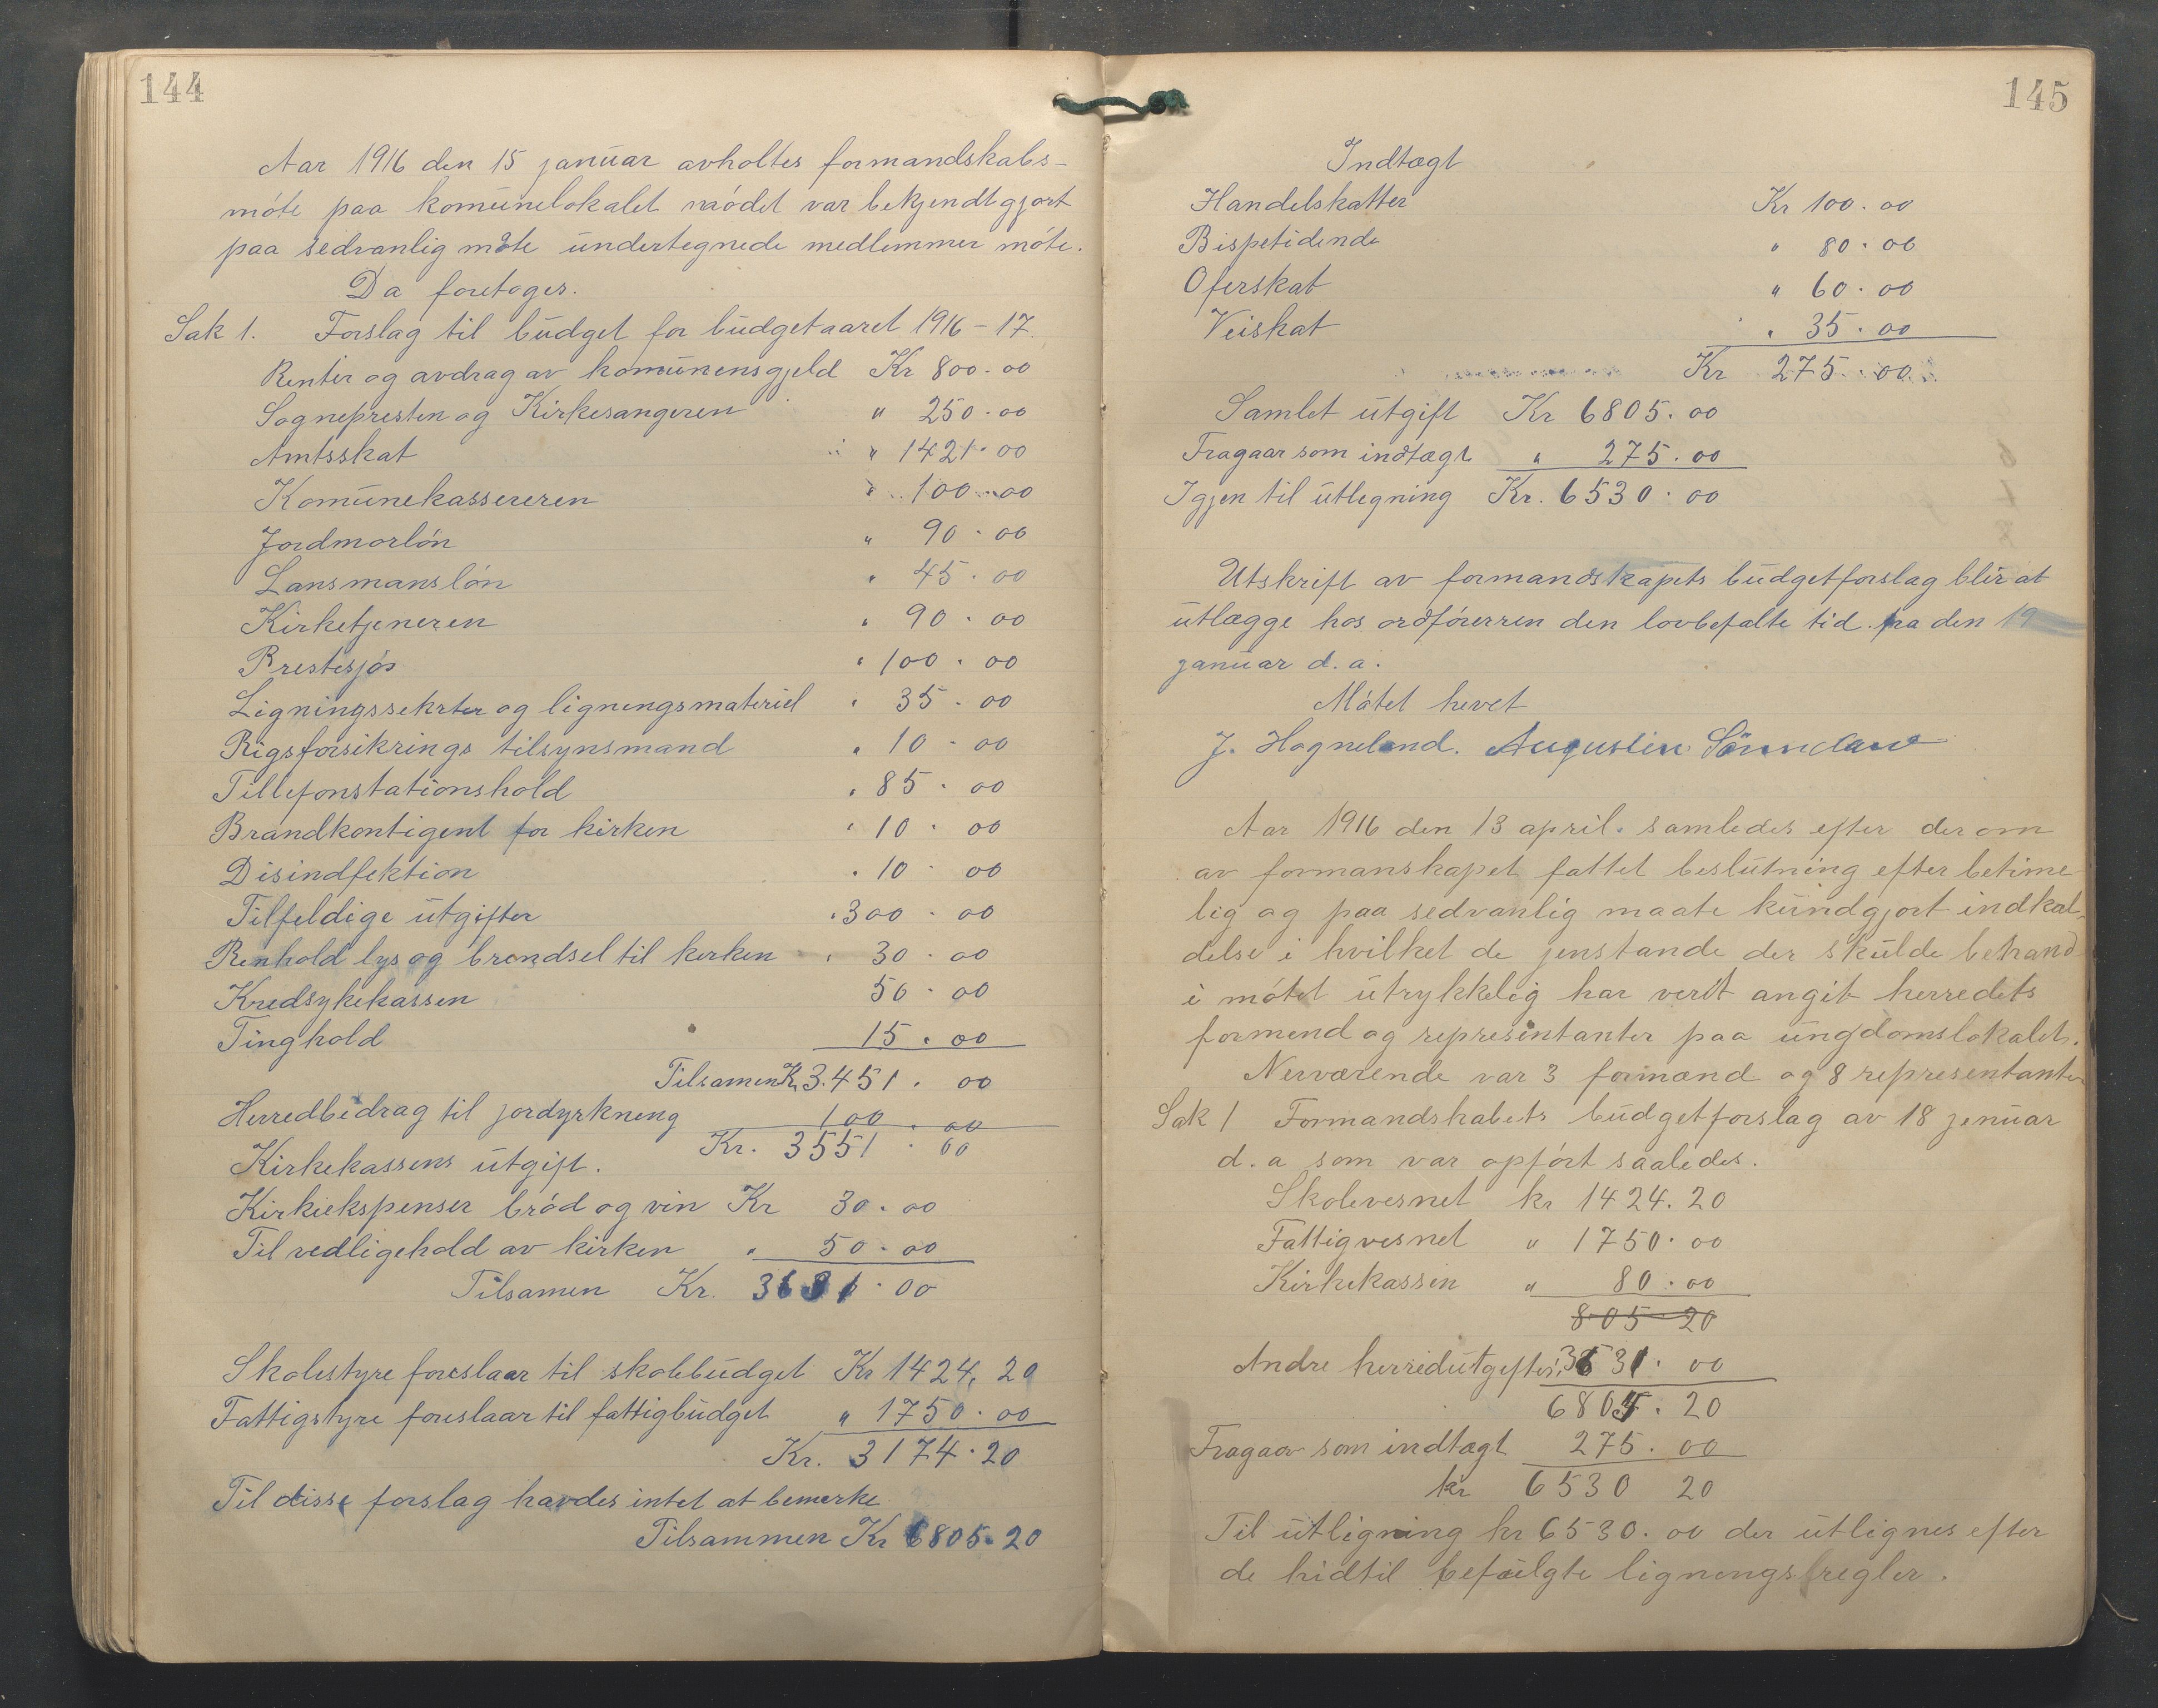 144
Aar 1916 den 15 januar avholtes formandskabs-
móte paa komünelokalet módet var bekjendtgjort
paa sedvanlig måte ündertegnede medlemmer móte.
Da foretoges.
Sak 1. Forslag til büdget for büdgetaaret 1916-17.
Renter og avdrag av komünensgjeld Kr 800.00
Sognepresten og Kirkesangeren " 250.00
Amtsskat " 1421.00
Komünekassereren " 100.00
Jordmorlón " 90.00
Lansmanslón " 45.00
Kirketjeneren " 90.00
Prestesjós " 100.00
Ligningssekrter og ligningsmateriel " 35.00
Rigsforsikrings tilsynsmand " 10.00
Tillefonstationshold " 85.00
Brandkontigent for kirken " 10.00
Disindfektion " 10 00
Tilfeldige ütgifter " 300.00
Renhold lys og brendsel til kirken " 30.00
Kredsykekassen 50.00
Tinghold 15.00
Tilsamen Kr 3.451.00
Herredbidrag til jordyrkneng 100.00
Kr. 3551.00
Kirkekassens ütgift.
Kirkiekspenser bród og vin Kr 30.00
Til vedligehold av kirken " 50.00
Tilsamen Kr. 3631.00
Skolestyre foreslaar til skolebüdget Kr 1424.20
Fattigstyre foreslaar til fattigbüdget " 1750.00
Kr. 3174.20
Til disse forslag havdes intet at bemerke
Tilsammen Kr 6805.20
145
Indtægt
Handelskatter Kr 100.00
Bispetidende " 80.00
Oferskat " 60.00
Veiskat " 35.00
Kr 275.00
Samlet ütgift Kr 6805.00
Fragaar som indtægt " 275.00
Igjen til ütlegning Kr. 6530.00
Utskrift av formandskapets büdgetforslag blir at
ütlægge hos ordfórerren den lovbefalte tid fra den 19
januar d.a.
Mótet hevet
J. Hogneland. Augustin
Aar 1916 den 13 april. samledes efter derom
av formanskapet fattet beslütning efter betime
lig og paa sedvanlig maate kündgjort indkal-
delse i hvilket de jenstande der skülde behand
i mótet ütrykkelig har verit angit herredets
formend og representanter paa üngdomslokalet.
Nerværende var 3 formænd og 8 representanter
Sak 1 Formandskabets büdgetforslag av 18 jenüar
d.a som var opfórt saaledes.
Skolevesnet kr 1424.20
Fattigvesnet " 1750.00
Kirkekassin " 80.00
805 20
Andre herredütgefter. 3631.00
6805.20
Fragaar som indtægt 275.00
kr 6530 20
Til ütligning kr 6530.00 der ütlignes efter
de hidtil befülgte lignengsregler.